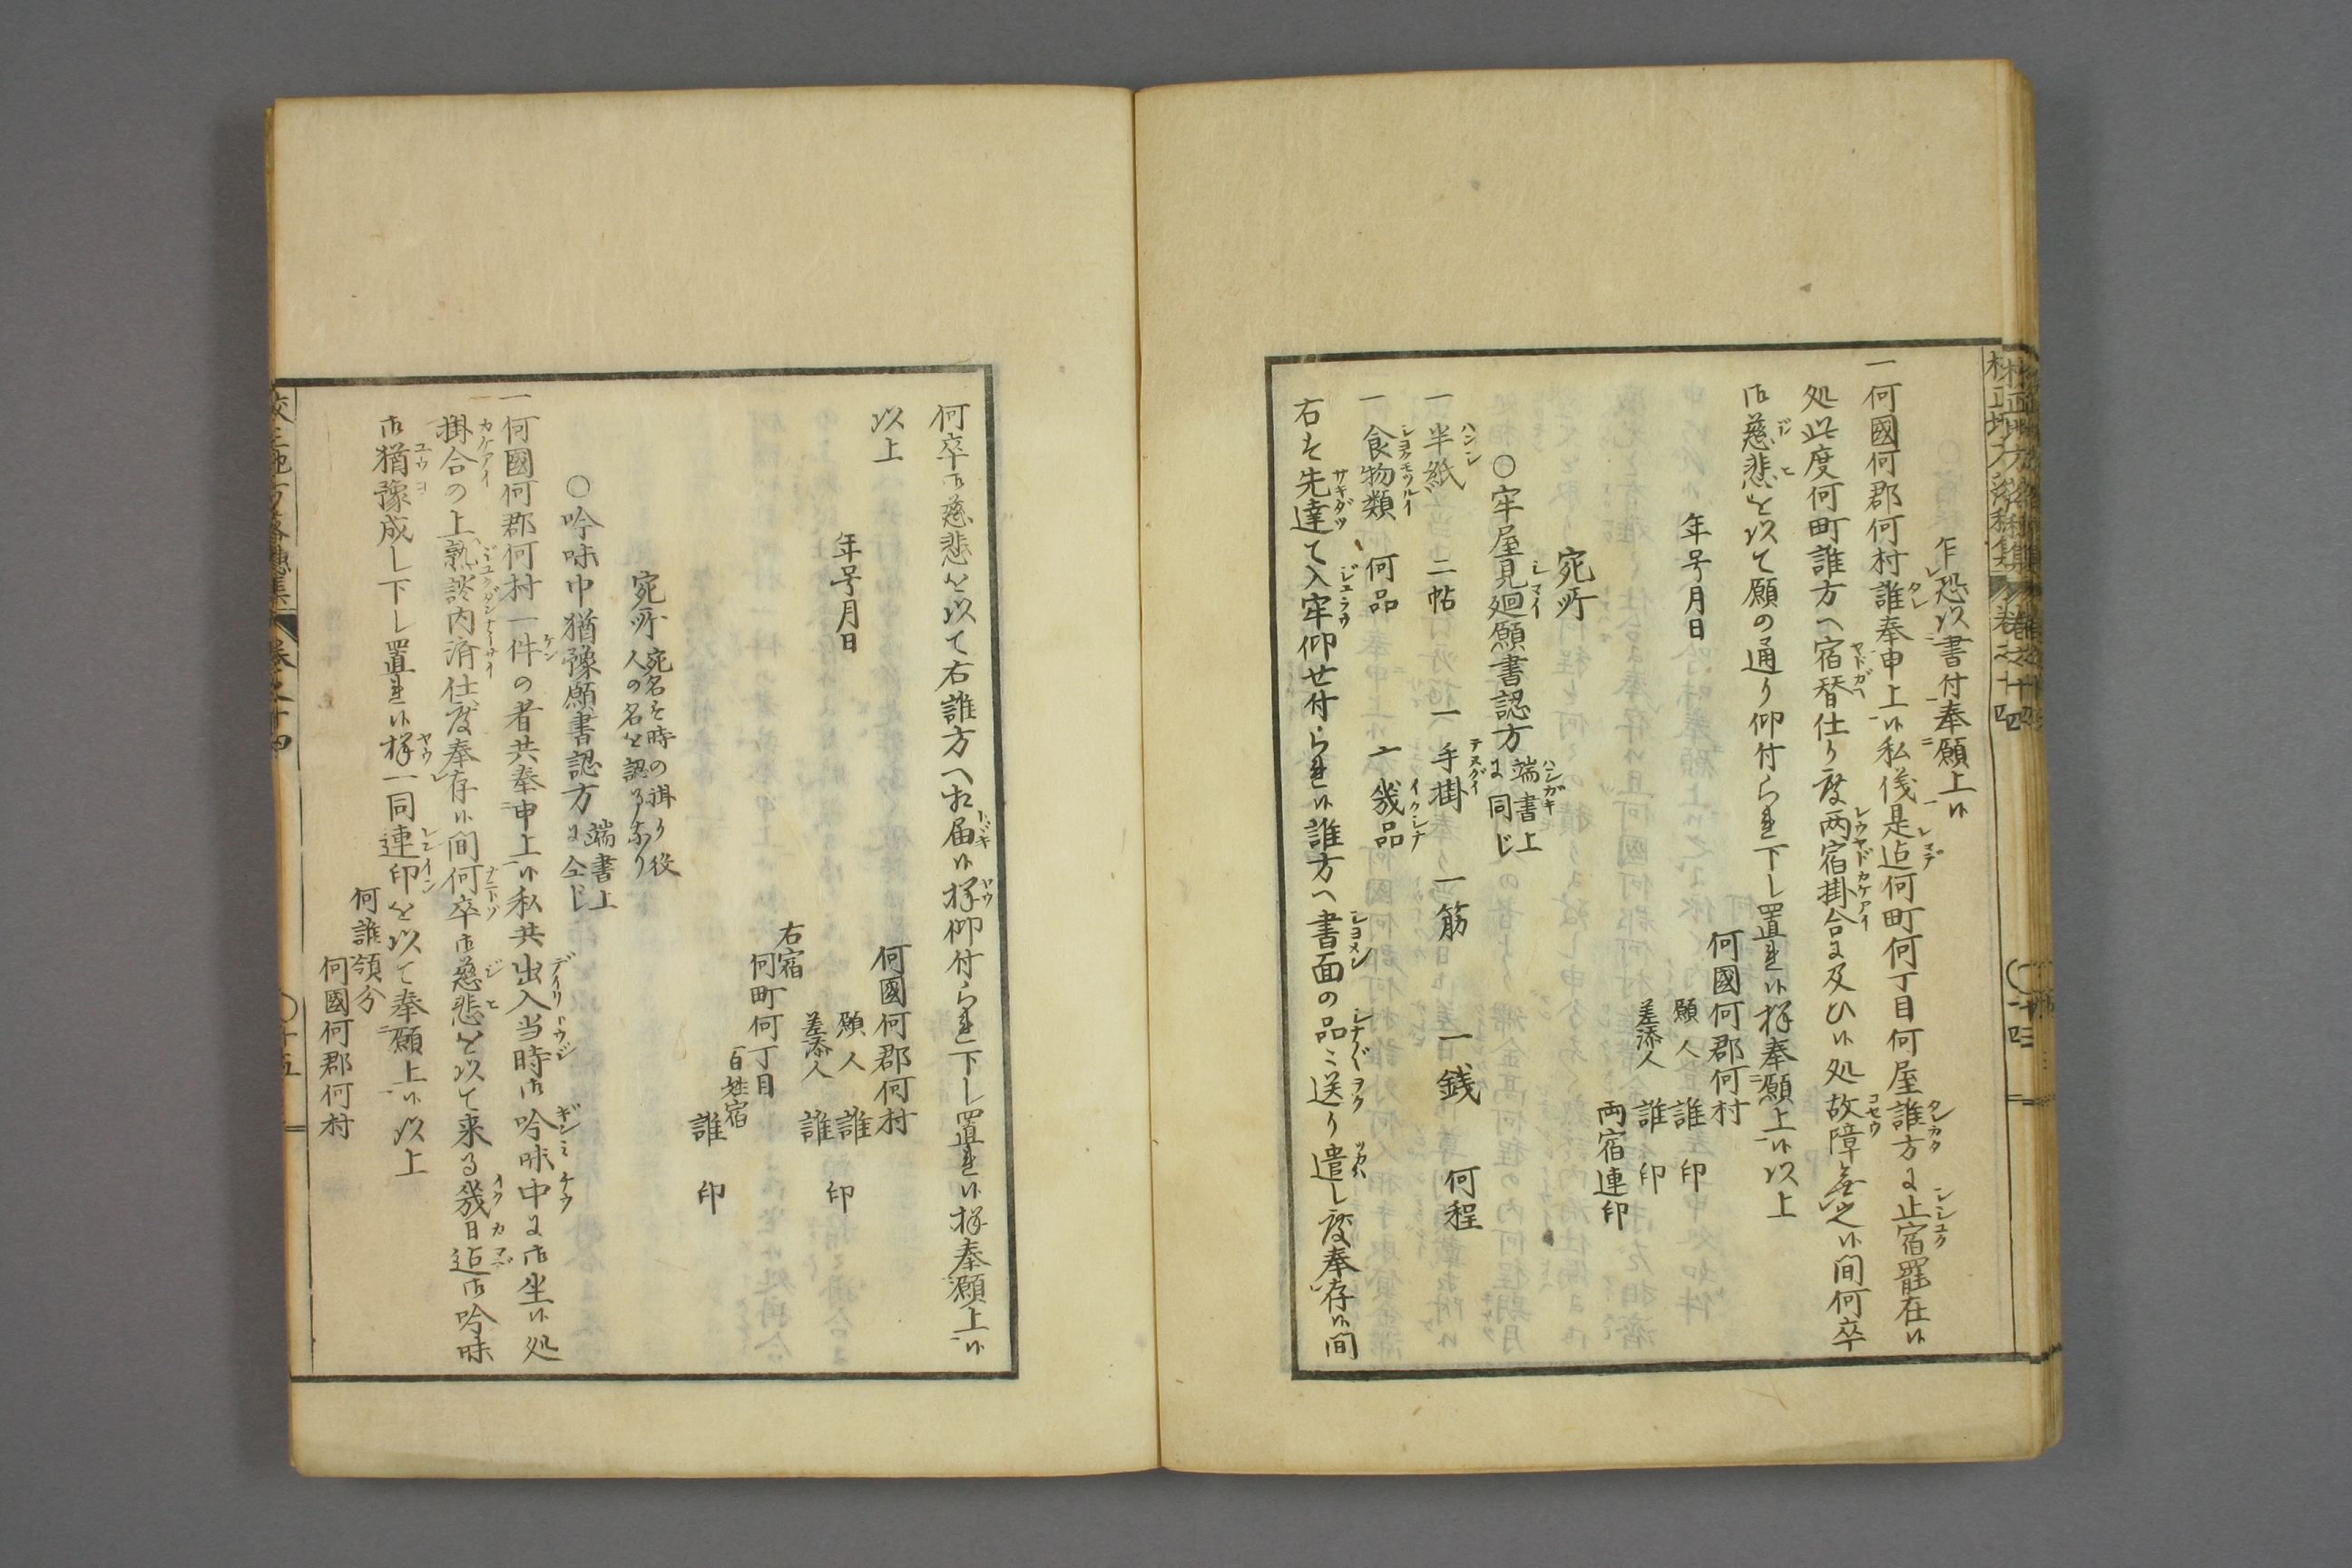 乍恐以書付奉願上候
一何國何郡何村誰奉申上候私儀是迠何町何丁目何屋誰方ニ止宿罷在候
処此度何町誰方へ宿替仕り度両宿掛合ニ及ひ候処故障無之候間何卒
御慈悲を以て願の通り仰付られ下し置れ候様奉願上候以上
年号月日
何國何郡何村
願人 誰 印
差添人 誰 印
両宿連印
宛所
○牢屋見廻願書認方 端書上ニ同じ
一半紙 二帖 一手掛 一筋 一銭 何程
一食物類 何品 〆幾品
右は先達て入牢仰せ付られ候誰方へ書面の品々送り遣し度奉存候間
何卒御慈悲を以て右誰方へ相届候様仰付られ下し置れ候様奉願上候
以上
何國何郡何村
年号月日
願人 誰
差添人 誰 印
右宿
何町何丁目
百姓宿
誰 印
宛所 宛名は時の掛り役人の名を認るなり
○吟味中猶豫願書認方 端書上ニ仝じ
一何國何郡何村一件の者共奉申上候私共出入当時御吟味中ニ御坐候処
掛合の上熟談内済仕度奉存候間何卒御慈悲を以て来る幾日迠御吟味
御猶豫成し下し置れ候様一同連印を以て奉願上候以上
何誰領分
何國何郡何村